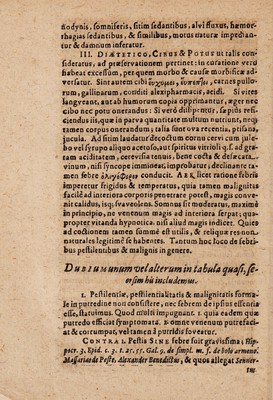 nodynis, somniferis, sitim sedantibus, alvi fluxus, hæmor-
rhagias sedantibus, & similibus, motus naturæ impediantur
tur & damnum inferatur.
III. DIÆTETICO, CIBUS & POTUS ut talis con-
sideratus, ad præservationem pertinet: in curatione verò
habeat excessum, per quem morbo & causæ morbificæ ad-
versatur. Sint autem cibi carnes pullo-
rum, gallinarum, conditi alexipharmacis, acidi. Si vires
langveant, aut ab humorum copia opprimantur, æger nec
cibo nec potu onerandus: Si verò dissipentur,
ciendus iis, quæ in parva quantitate multum nutriunt, neq;
tamen corpus onerandum; talia sunt ova recentia, ptisana,
juscula. Ad sitim laudatur decoctum cornu cervi cum jule-
bo vel syrupo aliquo acetoso, aut spiritus vitrioli q. s. ad gra-
tam aciditatem, cerevisia tenuis, bene cocta & defæcata, vi-
num, nisi syncope imminet, improbatur; declinante ta-
men febre concedimus. AER licet ratione febris
imperetur frigidus & temperatus, quia tamen malignitas
facilè ad interiora corporis penetrare potest, magis conve-
nit calidus, isq; svaveolens. Somnus sit moderatus, maximè
in principio, ne venenum magis ad interiora serpat; qua-
propter vitanda hypnotica, nisi aliud magis indicet. Quies
ad coctionem tamen summè est utilis, & reliquæ res non-
naturales legitimè se habentes. Tantum hoc loco de febri-
bus pestilentibus & malignis in genere.
Dubium unum vel alterum in tabula quasi, se-
orsim hîc includemus.
1. Pestilentiæ, pestilentialitatis & malignitatis forma-
le in putredine non consistere, nec febrem de ipsius essentia
esse, statuimus. Quod multi impugnant. 1. quia eadem quæ
putredo efficiat symptomata. 2. omne venenum putrefaci-
at & corrumpat, vel tamen à putridis foveatur.
CONTRA 1. Pestis SINE febre fuit gravissima; Hip-
pocr. 3. Epid. t. 3. t. 25. 55. Gal. 9. de simpl. m. f. de bolo armeno.
Massarias de Peste. Alexander Benedictus, & quos allegat Senner-
tus